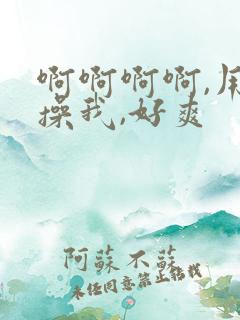 啊啊啊啊,
操我,好爽
阿蘇不蘇
未经同意禁止转载